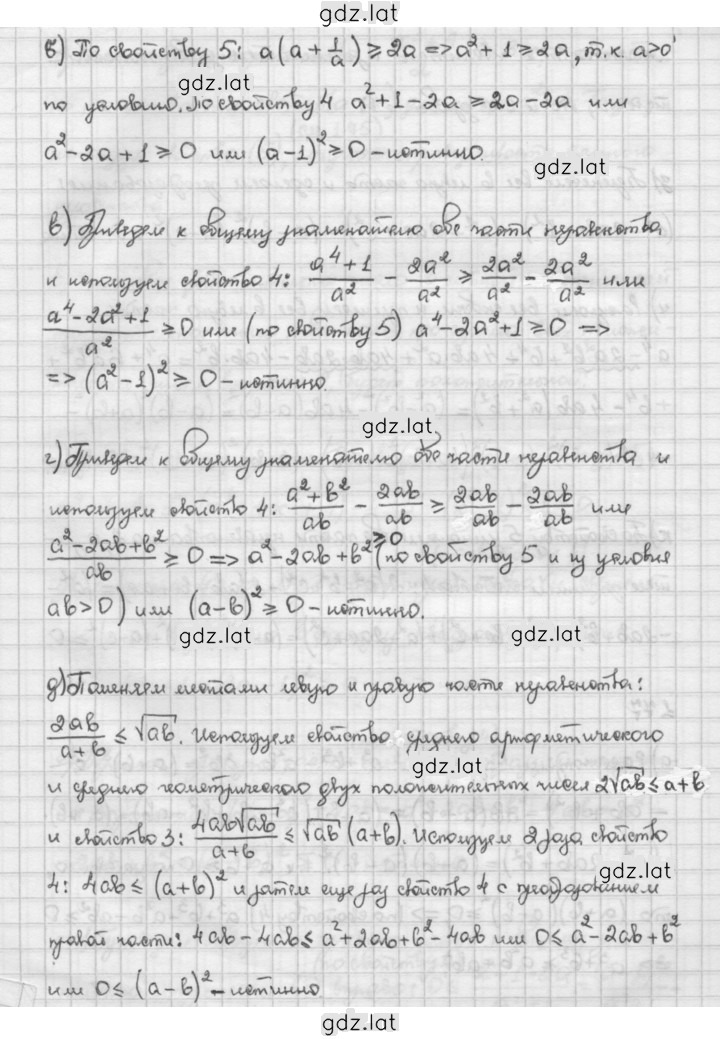 gdz.lat
б) По свойству 5: a(a + 1/a) ⩾ 2a => a² + 1 ⩾ 2a, т.к. a>0
gdz.lat
по условию. По свойству 4 a² + 1 - 2a ⩾ 2a - 2a или
a² - 2a + 1 ⩾ 0 или (a - 1)² ⩾ 0 - истинно.
gdz.lat
в) Приведем к общему знаменателю обе части неравенства
и используем свойство 4: (a⁴ + 1)/a² - 2a²/a² ⩾ 2a²/a² - 2a²/a² или
(a⁴ - 2a² + 1)/a² ⩾ 0 или (по свойству 5) a⁴ - 2a² + 1 ⩾ 0 =>
=> (a² - 1)² ⩾ 0 - истинно.
gdz.lat
г) Приведем к общему знаменателю обе части неравенства и
используем свойство 4: (a² + b²)/ab - 2ab/ab ⩾ 2ab/ab - 2ab/ab или
(a² - 2ab + b²)/ab ⩾ 0 => a² - 2ab + b² ⩾ 0 (по свойству 5 и из условия
ab > 0) или (a - b)² ⩾ 0 - истинно.
gdz.lat gdz.lat
д) Поменяем местами левую и правую части неравенства:
2ab/(a + b) ⩽ √ab. Используем свойство среднего арифметического
gdz.lat
и среднего геометрического двух положительных чисел 2√ab ⩽ a + b
и свойство 3: 4ab√ab/(a + b) ⩽ √ab (a + b). Используем 2 раза свойство
gdz.lat
4: 4ab ⩽ (a + b)² и затем еще раз свойство 4 с преобразованием
правой части: 4ab - 4ab ⩽ a² + 2ab + b² - 4ab или 0 ⩽ a² - 2ab + b²
или 0 ⩽ (a - b)² - истинно
gdz.lat
gdz.lat